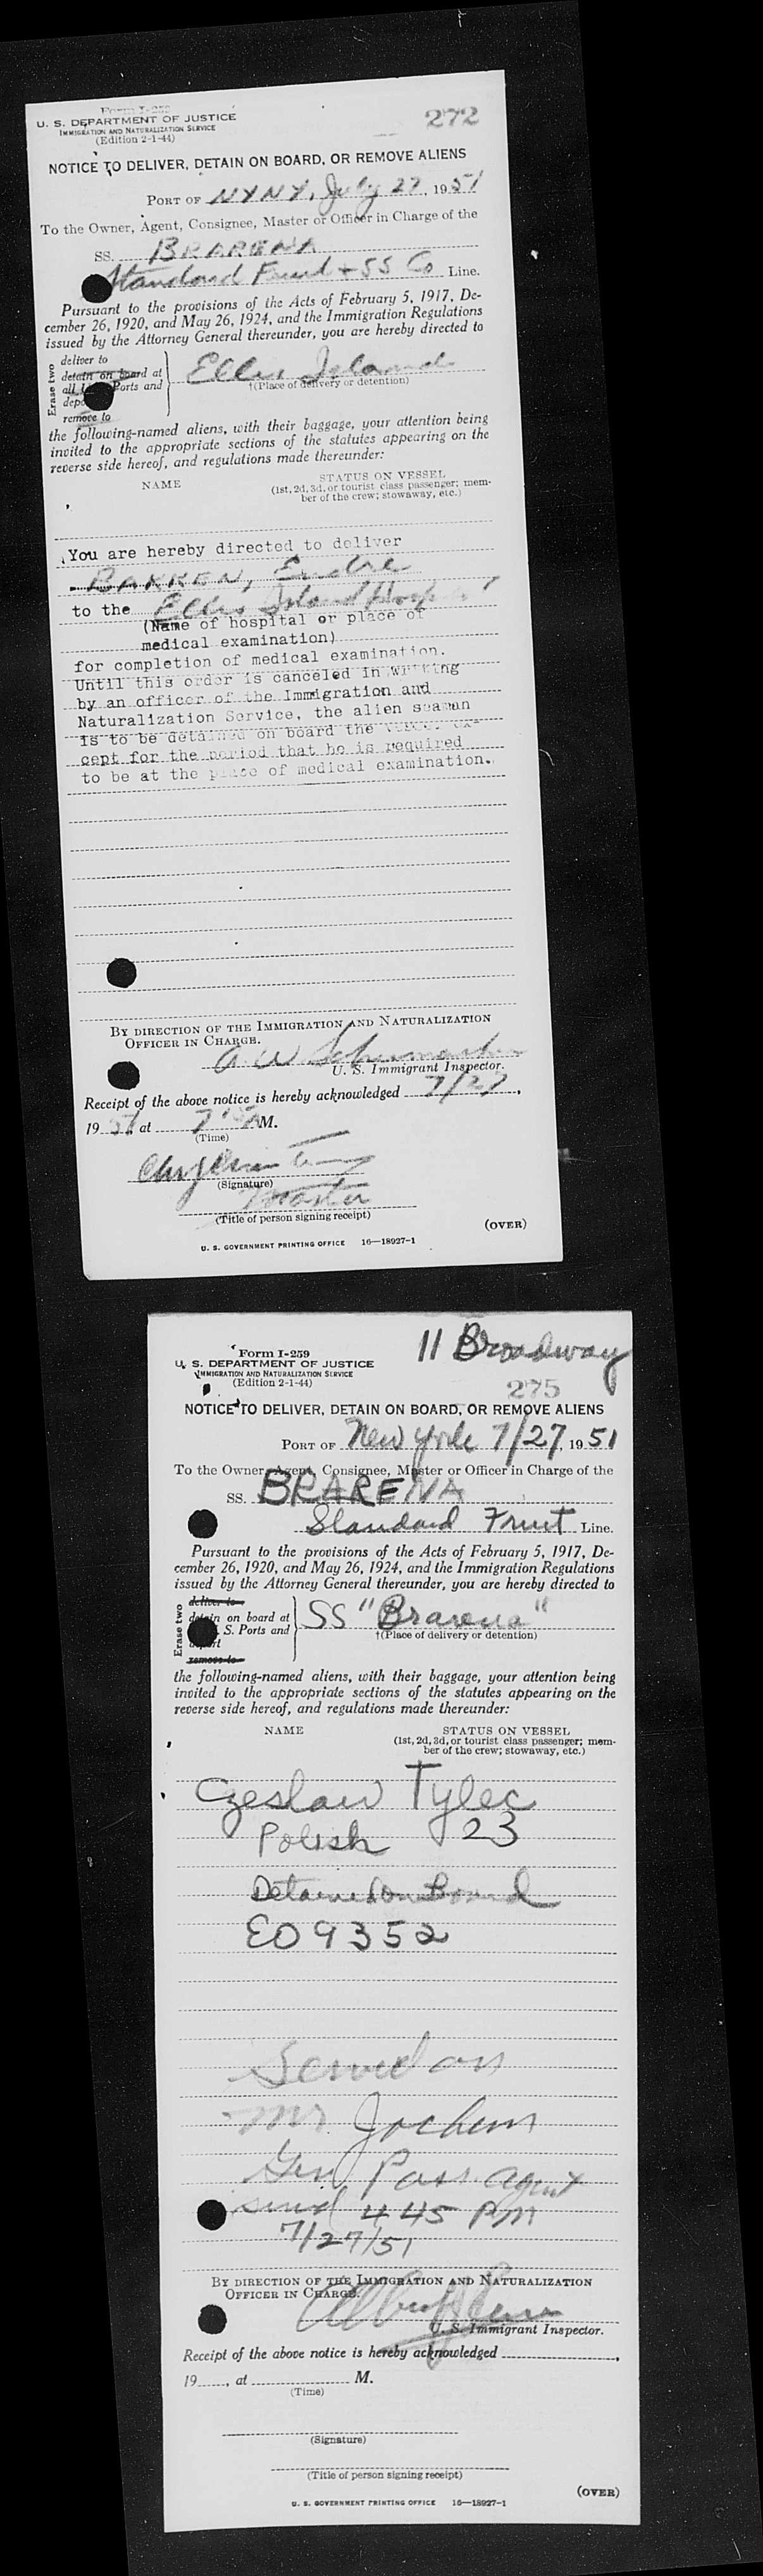 Form I-259
U. S. DEPARTMENT OF JUSTICE
IMMIGRATION AND NATURALIZATION SERVICE
(Edition 2-1-44)
272
NOTICE TO DELIVER, DETAIN ON BOARD, OR REMOVE ALIENS
PORT OF NYNY, July 27, 1951
To the Owner, Agent, Consignee, Master or Officer in Charge of the
SS. BRARENA
Standard Fruit + SS Co Line.
Pursuant to the provisions of the Acts of February 5, 1917, De-
cember 26, 1920, and May 26, 1924, and the Immigration Regulations
issued by the Attorney General thereunder, you are hereby directed to
Erase two
deliver to
detain on board at
all Ports and
remove to
Ellis Island
†(Place of delivery or detention)
the following-named aliens, with their baggage, your attention being
invited to the appropriate sections of the statutes appearing on the
reverse side hereof, and regulations made thereunder:
NAME
STATUS ON VESSEL
(1st, 2d, 3d, or tourist class passenger; mem-
ber of the crew; stowaway, etc.)
You are hereby directed to deliver
BAKKEN, Endre
to the Ellis Island
(Name of hospital or place of
medical examination)
for completion of medical examination.
Until this order is canceled in writing
by an officer of the Immigration and
Naturalization Service, the alien seaman
is to be detained on board the vessel ex-
cept for the period that he is required
to be at the place of medical examination.
BY DIRECTION OF THE IMMIGRATION AND NATURALIZATION
OFFICER IN CHARGE.
A W Schumacher
U. S. Immigrant Inspector.
Receipt of the above notice is hereby acknowledged 7/27,
1951, at 7 AM.
(Time)
(Signature)
Master
(Title of person signing receipt)
(OVER)
U. S. GOVERNMENT PRINTING OFFICE 16—18927-1
11 Broadway
Form I-259
U. S. DEPARTMENT OF JUSTICE
IMMIGRATION AND NATURALIZATION SERVICE
(Edition 2-1-44)
275
NOTICE TO DELIVER, DETAIN ON BOARD, OR REMOVE ALIENS
PORT OF New York 7/27, 1951
To the Owner, Agent, Consignee, Master or Officer in Charge of the
SS. BRARENA
Standard Fruit Line.
Pursuant to the provisions of the Acts of February 5, 1917, De-
cember 26, 1920, and May 26, 1924, and the Immigration Regulations
issued by the Attorney General thereunder, you are hereby directed to
Erase two
deliver to
detain on board at
S. Ports and
remove to
SS "Brarena"
†(Place of delivery or detention)
the following-named aliens, with their baggage, your attention being
invited to the appropriate sections of the statutes appearing on the
reverse side hereof, and regulations made thereunder:
NAME
STATUS ON VESSEL
(1st, 2d, 3d, or tourist class passenger; mem-
ber of the crew; stowaway, etc.)
Czeslaw Tylec
Polish 23
Detained on Board
EO 9352
Served on
Mr Jochem
Gen Pass. Agent
4 45 PM
7/27/51
BY DIRECTION OF THE IMMIGRATION AND NATURALIZATION
OFFICER IN CHARGE.
U. S. Immigrant Inspector.
Receipt of the above notice is hereby acknowledged
19, at M.
(Time)
(Signature)
(Title of person signing receipt)
(OVER)
U. S. GOVERNMENT PRINTING OFFICE 16—18927-1